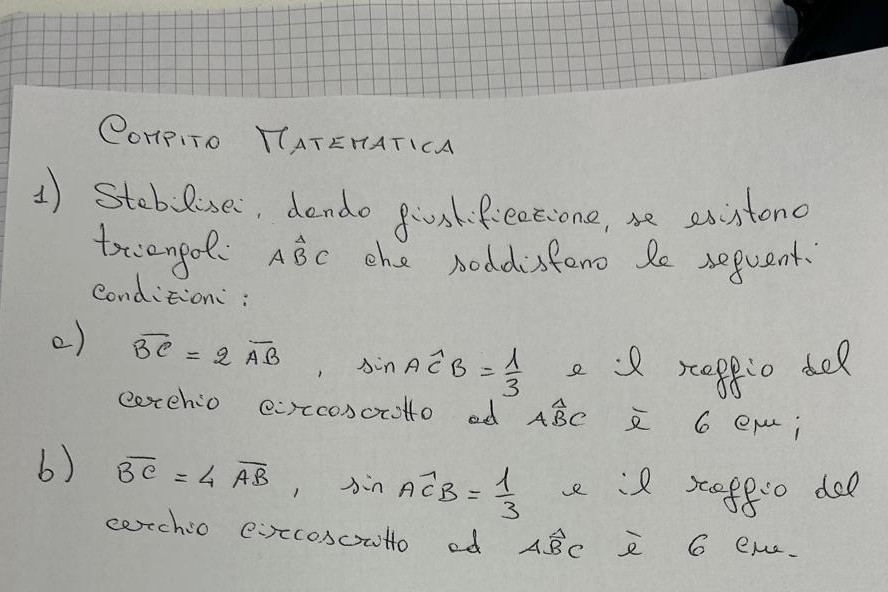 COMPITO MATEMATICA
1) Stabilisci, dando giustificazione, se esistono
triangoli AB̂C che soddisfano le seguenti
condizioni:
a) B̅C̅ = 2 A̅B̅, sin AĈB = 1/3 e il raggio del
cerchio circoscritto ad AB̂C è 6 cm;
b) B̅C̅ = 4 A̅B̅, sin AĈB = 1/3 e il raggio del
cerchio circoscritto ad AB̂C è 6 cm.